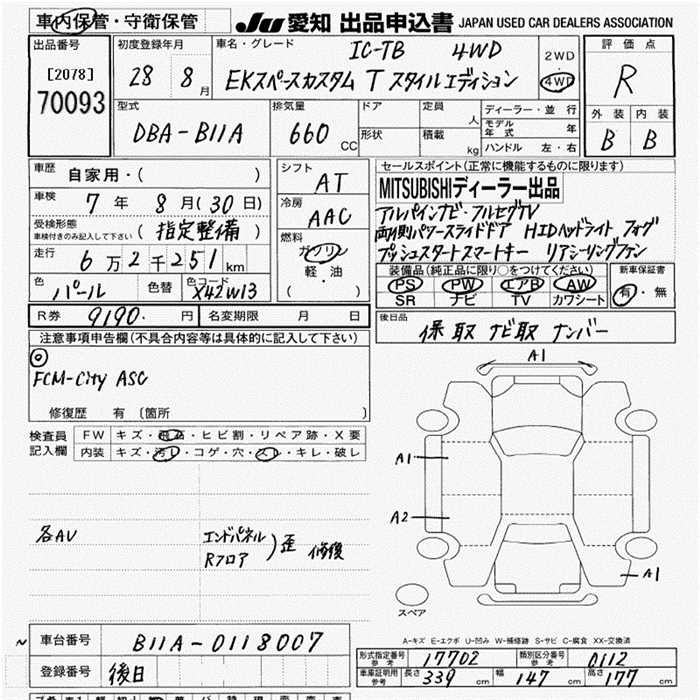 車内保管・守衛保管
JU 愛知 出品申込書 JAPAN USED CAR DEALERS ASSOCIATION
出品番号
[2078]
70093
初度登録年月
28 8月
車名・グレード
IC-TB 4WD
EKスペースカスタム T スタイルエディション
2WD
4WD
評価点
R
外装 内装
B B
型式
DBA-B11A
排気量
660 CC
ドア
形状
定員 人
積載 kg
ディーラー・並行
モデル年式 年
ハンドル 左・右
車歴
自家用・( )
車検
7年 8月(30日)
受検形態
車検付きのみ記入して下さい
(指定整備)
走行
6万2千251km
色
パール
色替
色コード
X42W13
シフト
AT
冷房
AAC
燃料
ガソリン
軽・油
( )
セールスポイント(正常に機能するものに限ります)
MITSUBISHIディーラー出品
アルパインナビ・フルセグTV
両側パワースライドドア HIDヘッドライト フォグ
プッシュスタートスマートキー リアシーリングファン
装備品(純正品に限り○をつけてください)
PS PW エアB AW
SR ナビ TV カワシート
新車保証書
有・無
R券 9190.円
名変期限 月 日
後日品
保 取 ナビ取 ナンバー
注意事項申告欄(不具合内容等は具体的に記入して下さい)
◎
FCM-City ASC
修復歴 有 〔箇所 〕
検査員記入欄
FW キズ・飛石・ヒビ割・リペア跡・X要
内装 キズ・汚レ・コゲ・穴・スレ・キレ・破レ
各AU
エンドパネル
Rフロア
)歪 修復
A1
A1
A2
A1
スペア
A-キズ E-エクボ U-凹み W-補修跡 S-サビ C-腐食 XX-交換済
~
車台番号
B11A-0118007
登録番号
後日
形式指定番号
参考
17702
類別区分番号
参考
0112
車庫証明用
参考
長さ 339 cm
幅 147 cm
高さ 177 cm